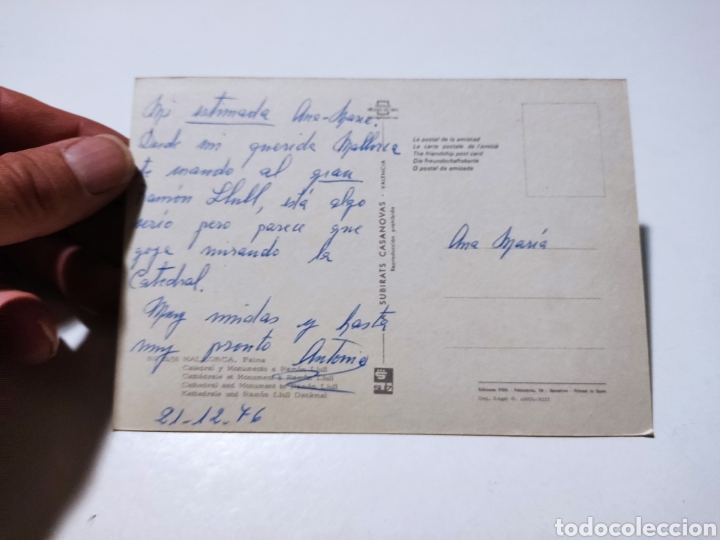 Mi estimada Ana-Marie.
Desde mi querida Mallorca
te mando al gran
Ramón Llull, está algo
serio pero parece que
goza mirando la
Catedral.
Muy unidas y hasta
muy pronto Antonio
MALLORCA. Palma
Catedral y Monumento a Ramón Llull
Cathédrale et Monument a Ramón Llull
Cathedral and Monument to Ramón Llull
Kathedrale und Ramón Llull Denkmal
21-12-76
SUBIRATS CASANOVAS - VALENCIA
Reproducción prohibida
La postal de la amistad
La carte postale de l'amitié
The friendship post card
Die Freundschaftskarte
O postal da amizade
Ana María
Printed in Spain
Dep. Legal B.
todocoleccion